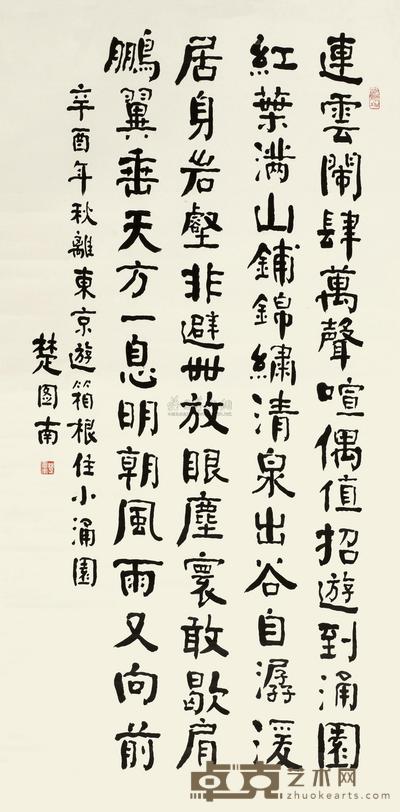 連雲鬧肆萬聲喧偶值招遊到涌園
紅葉满山鋪錦繡清泉出谷自潺湲
居身岩壑非避世放眼塵寰敢歇肩
鵬翼垂天方一息明朝風雨又向前
辛酉年秋離東京遊箱根住小涌園
楚圖南
卓克艺术网
www.zhuokearts.com